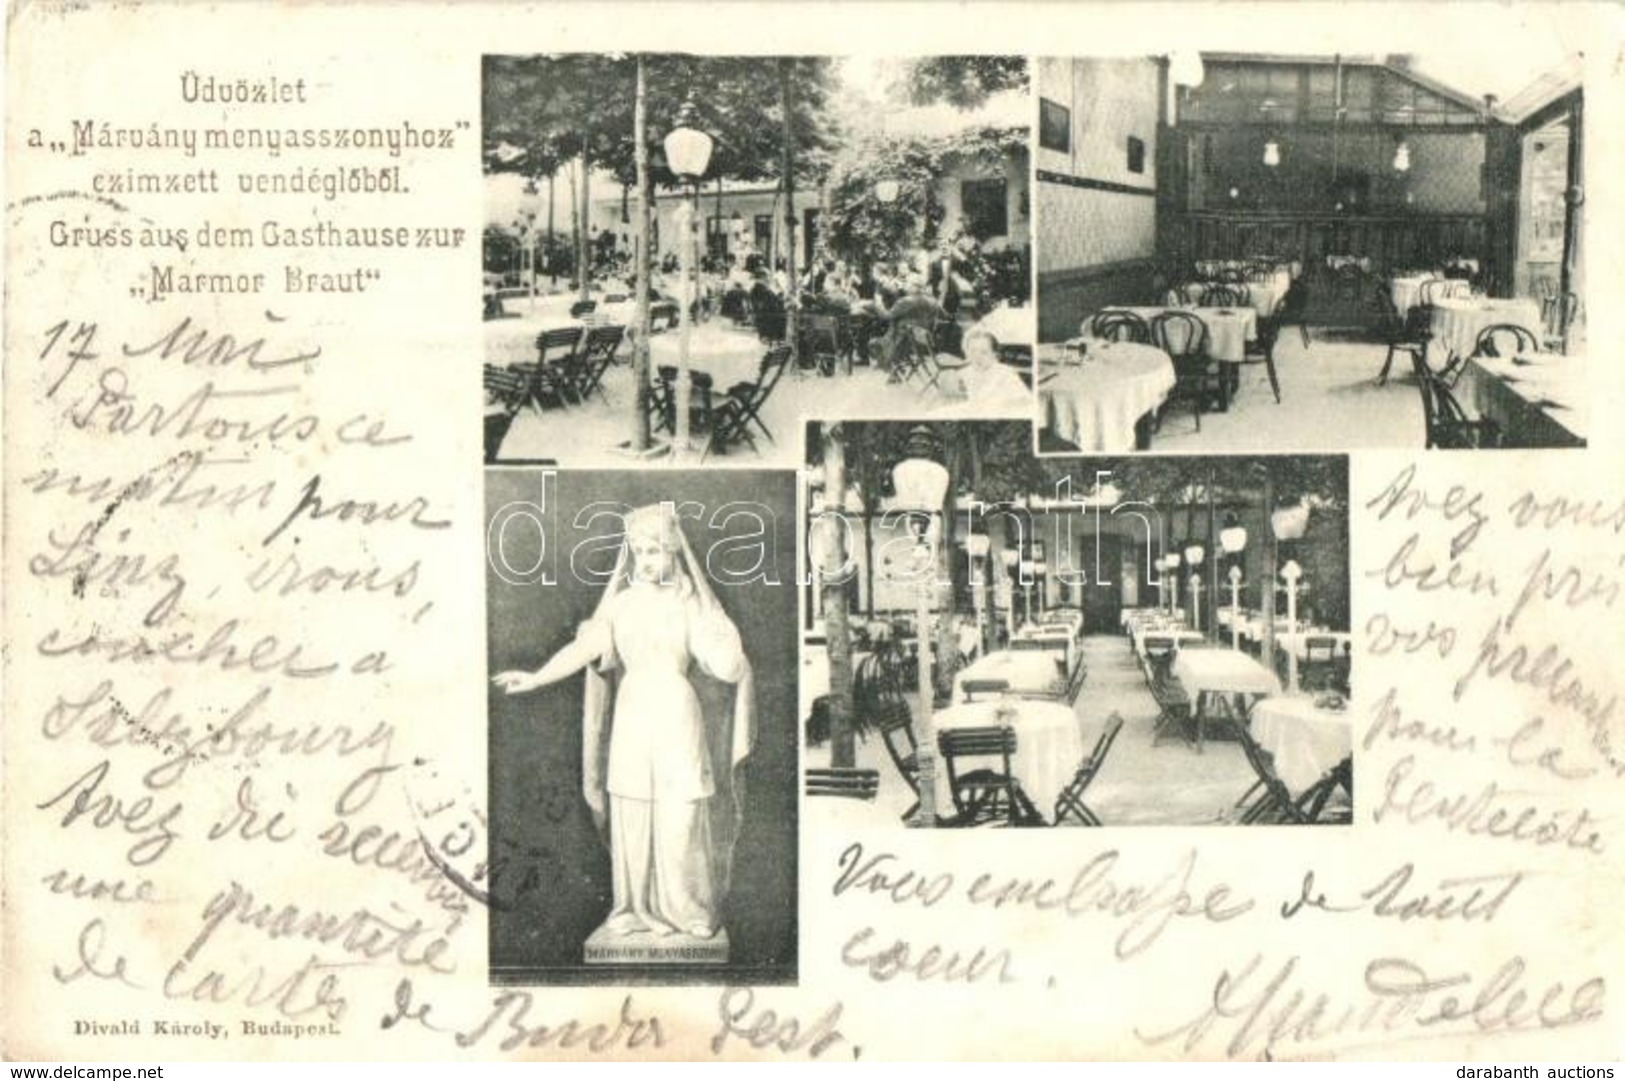 Üdvözlet
a „Márvány menyasszonyhoz”
czimzett vendéglőből.
Gruss aus dem Gasthause zur
„Marmor Braut“
17 Mai
Partons ce
matin pour
Linz, irons,
coucher a
Salzbourg
Avez dû recevoir
une quantité
de cartes de Buda Pest.
Avez vous
bien pris
vos
pour la
Pentecôte
Vous embrasse de tout
coeur.
MÁRVÁNY MENYASSZONY
darabanth
Divald Károly, Budapest.
darabanth auctions